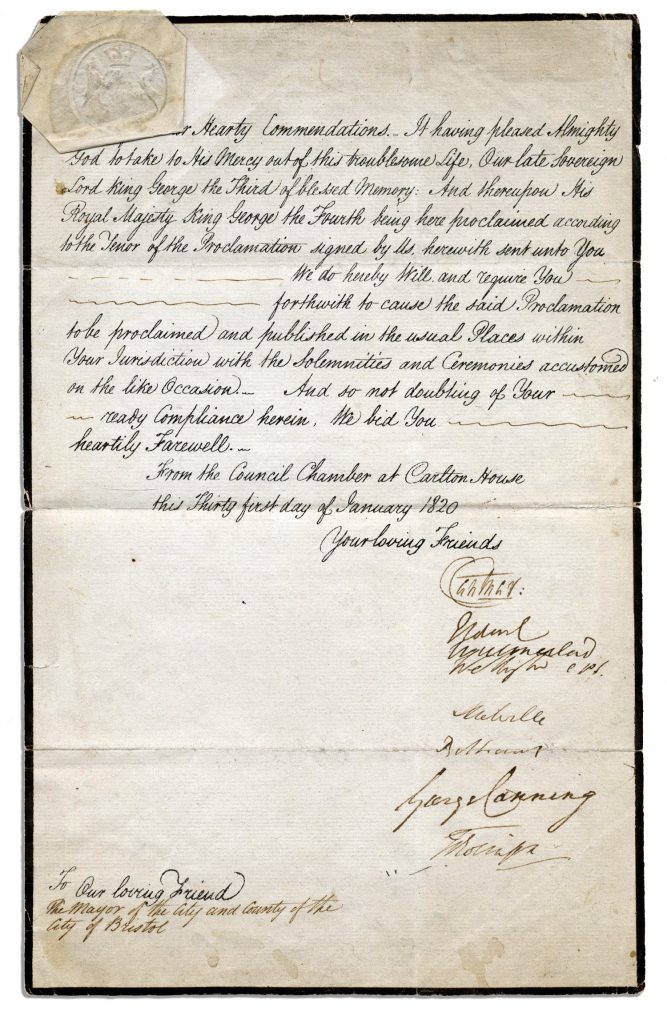 Hearty Commendations._ It having pleased Almighty
God to take to His Mercy out of this troublesome Life, Our late Sovereign
Lord King George the Third of blessed Memory: And thereupon His
Royal Majesty King George the Fourth being here proclaimed according
to the Tenor of the Proclamation signed by Us, herewith sent unto You
We do hereby Will and require You
forthwith to cause the said Proclamation
to be proclaimed and published in the usual Places within
Your Jurisdiction with the Solemnities and Ceremonies accustomed
on the like Occasion._ And so not doubting of Your
ready Compliance herein, We bid You
heartily Farewell._
From the Council Chamber at Carlton House
this Thirty first day of January 1820
Your loving Friends
Wellington
Melville
Bathurst
George Canning
To Our loving Friend
The Mayor of the City and County of the
City of Bristol